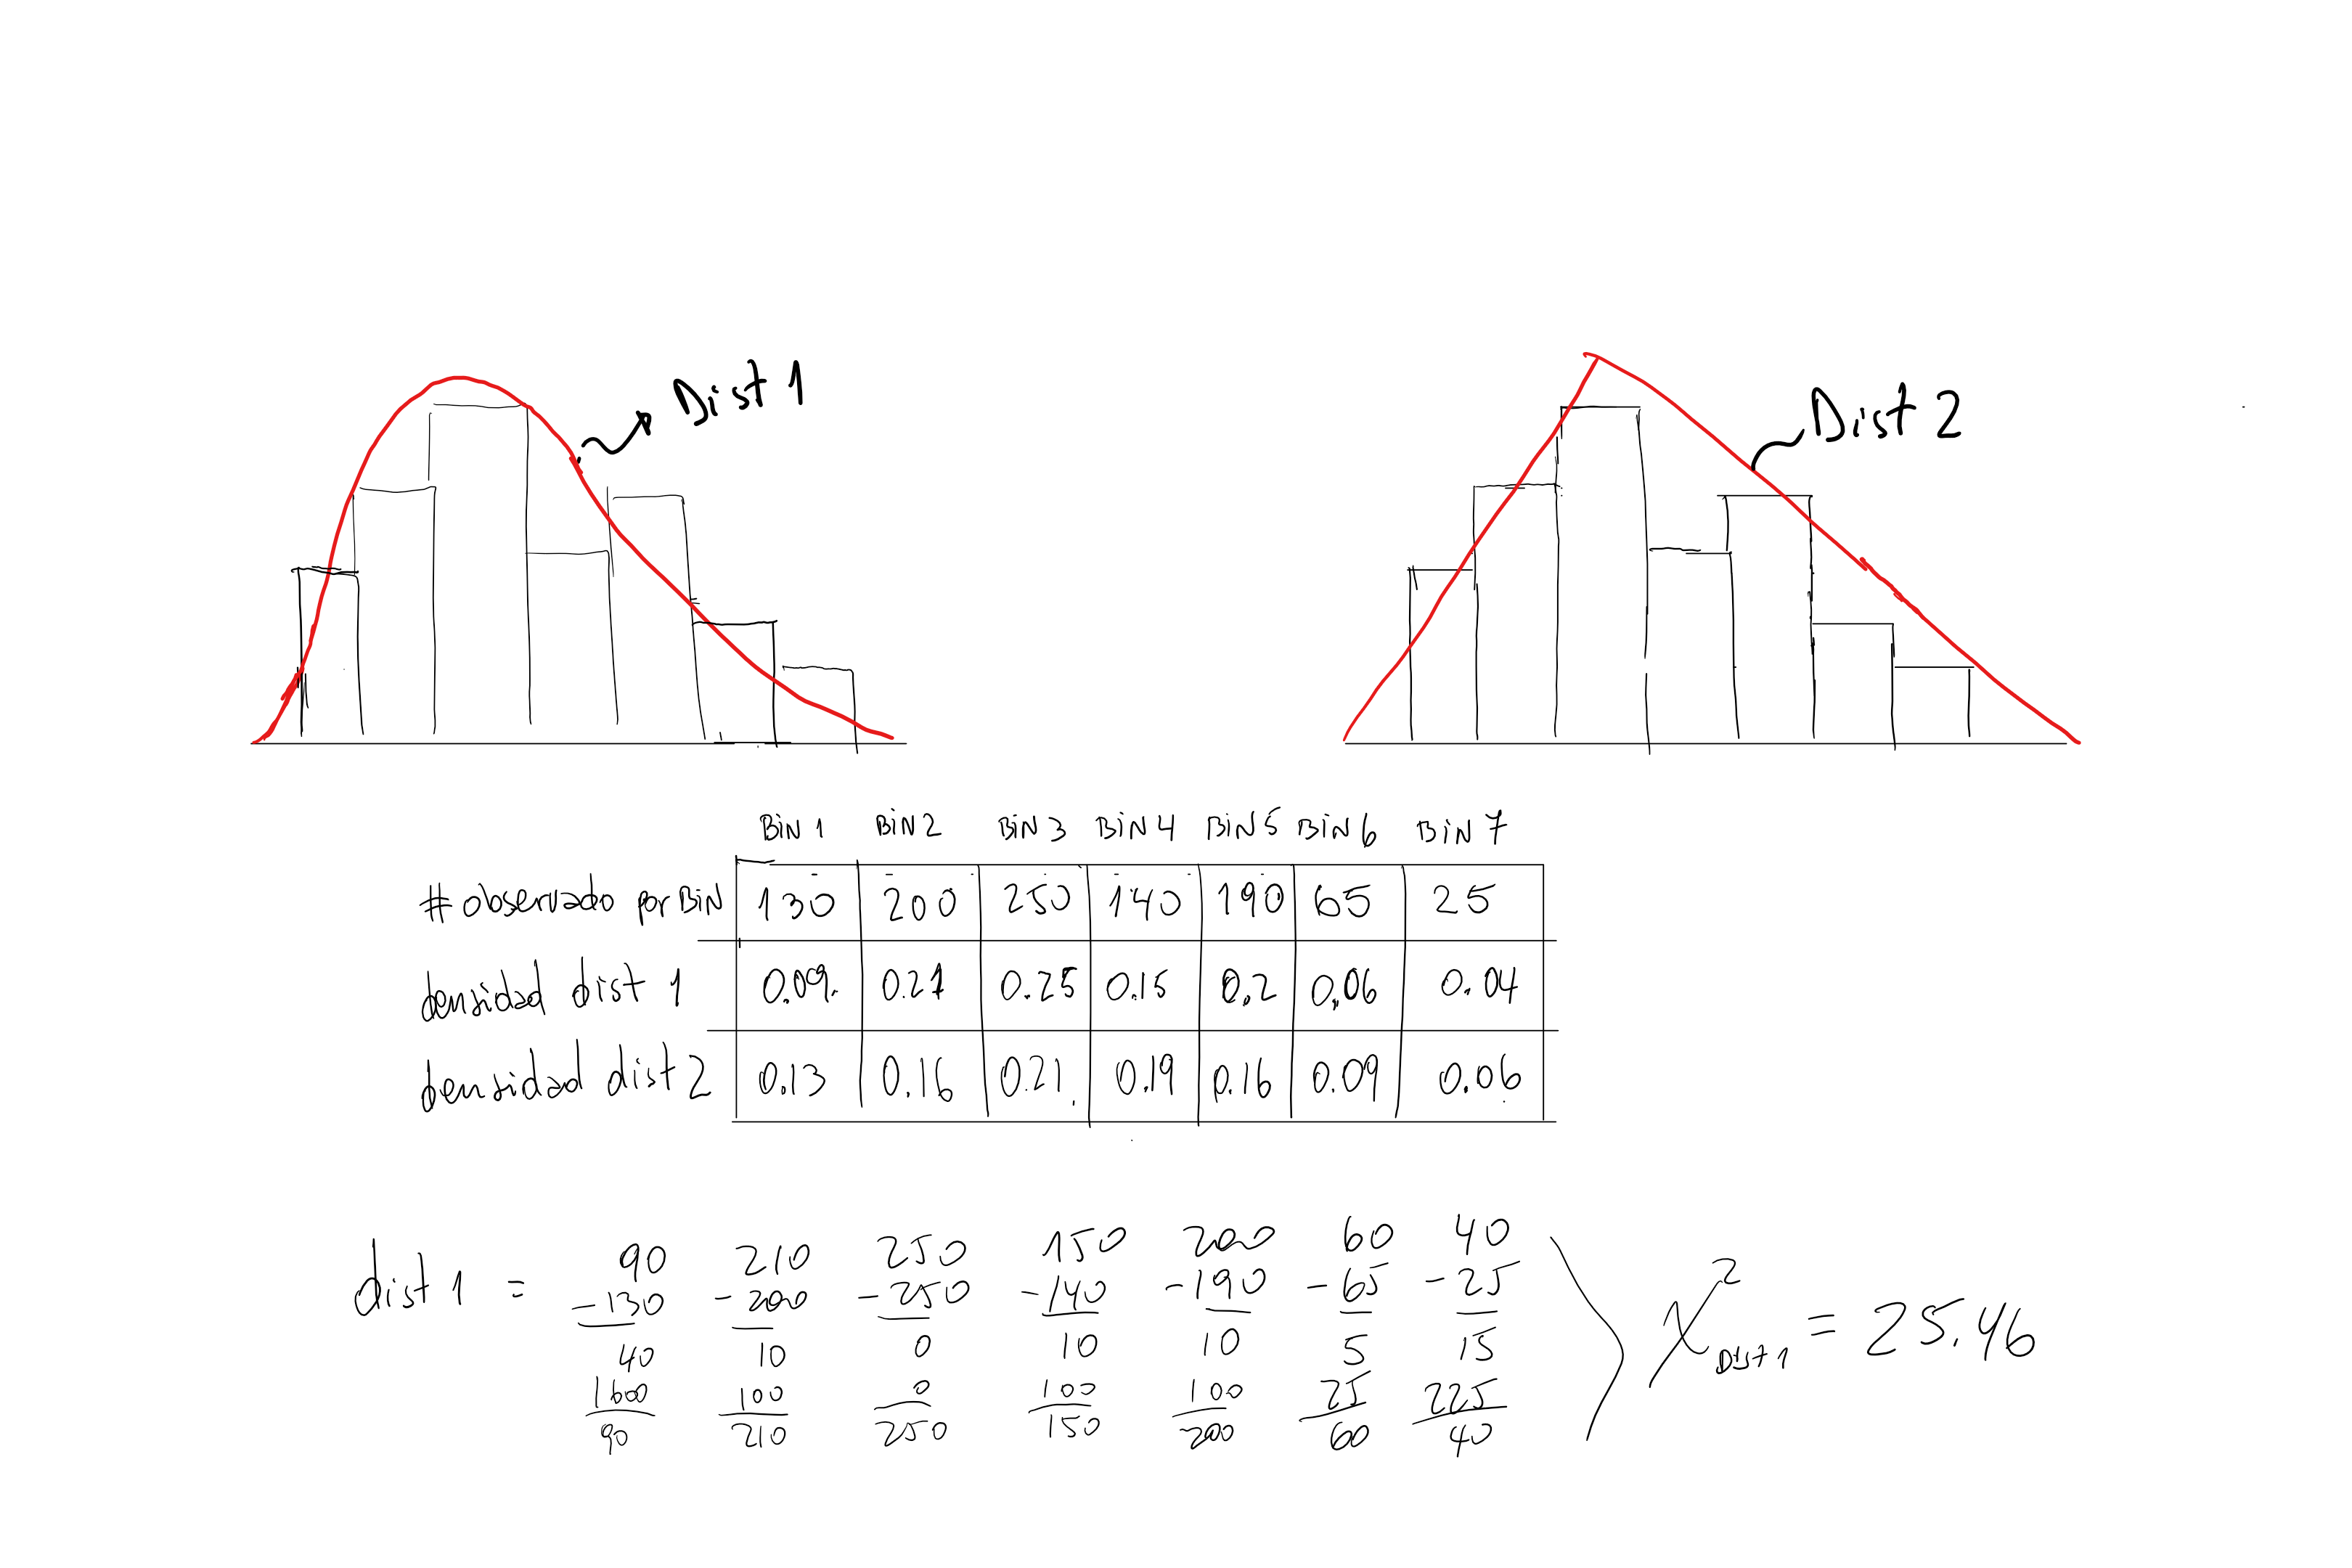 Dist 1
Dist 2
BiN 1 BiN 2 BiN 3 BiN 4 BiN 5 BiN 6 BiN 7
# observado por BiN 130 200 250 140 190 65 25
densidad dist 1 0.09. 0.21 0.25 0.15 0.2 0.06 0.04
densidad dist 2 0.13 0.16 0.21. 0.19 0.16 0.09 0.06
dist 1 = 90 210 250 150 200 60 40
-130 -200 -250 -140 -190 -65 -25
40 10 0 10 10 5 15
1600 100 0 100 100 25 225
90 210 250 150 200 60 40
χ² Dist 1 = 25.46